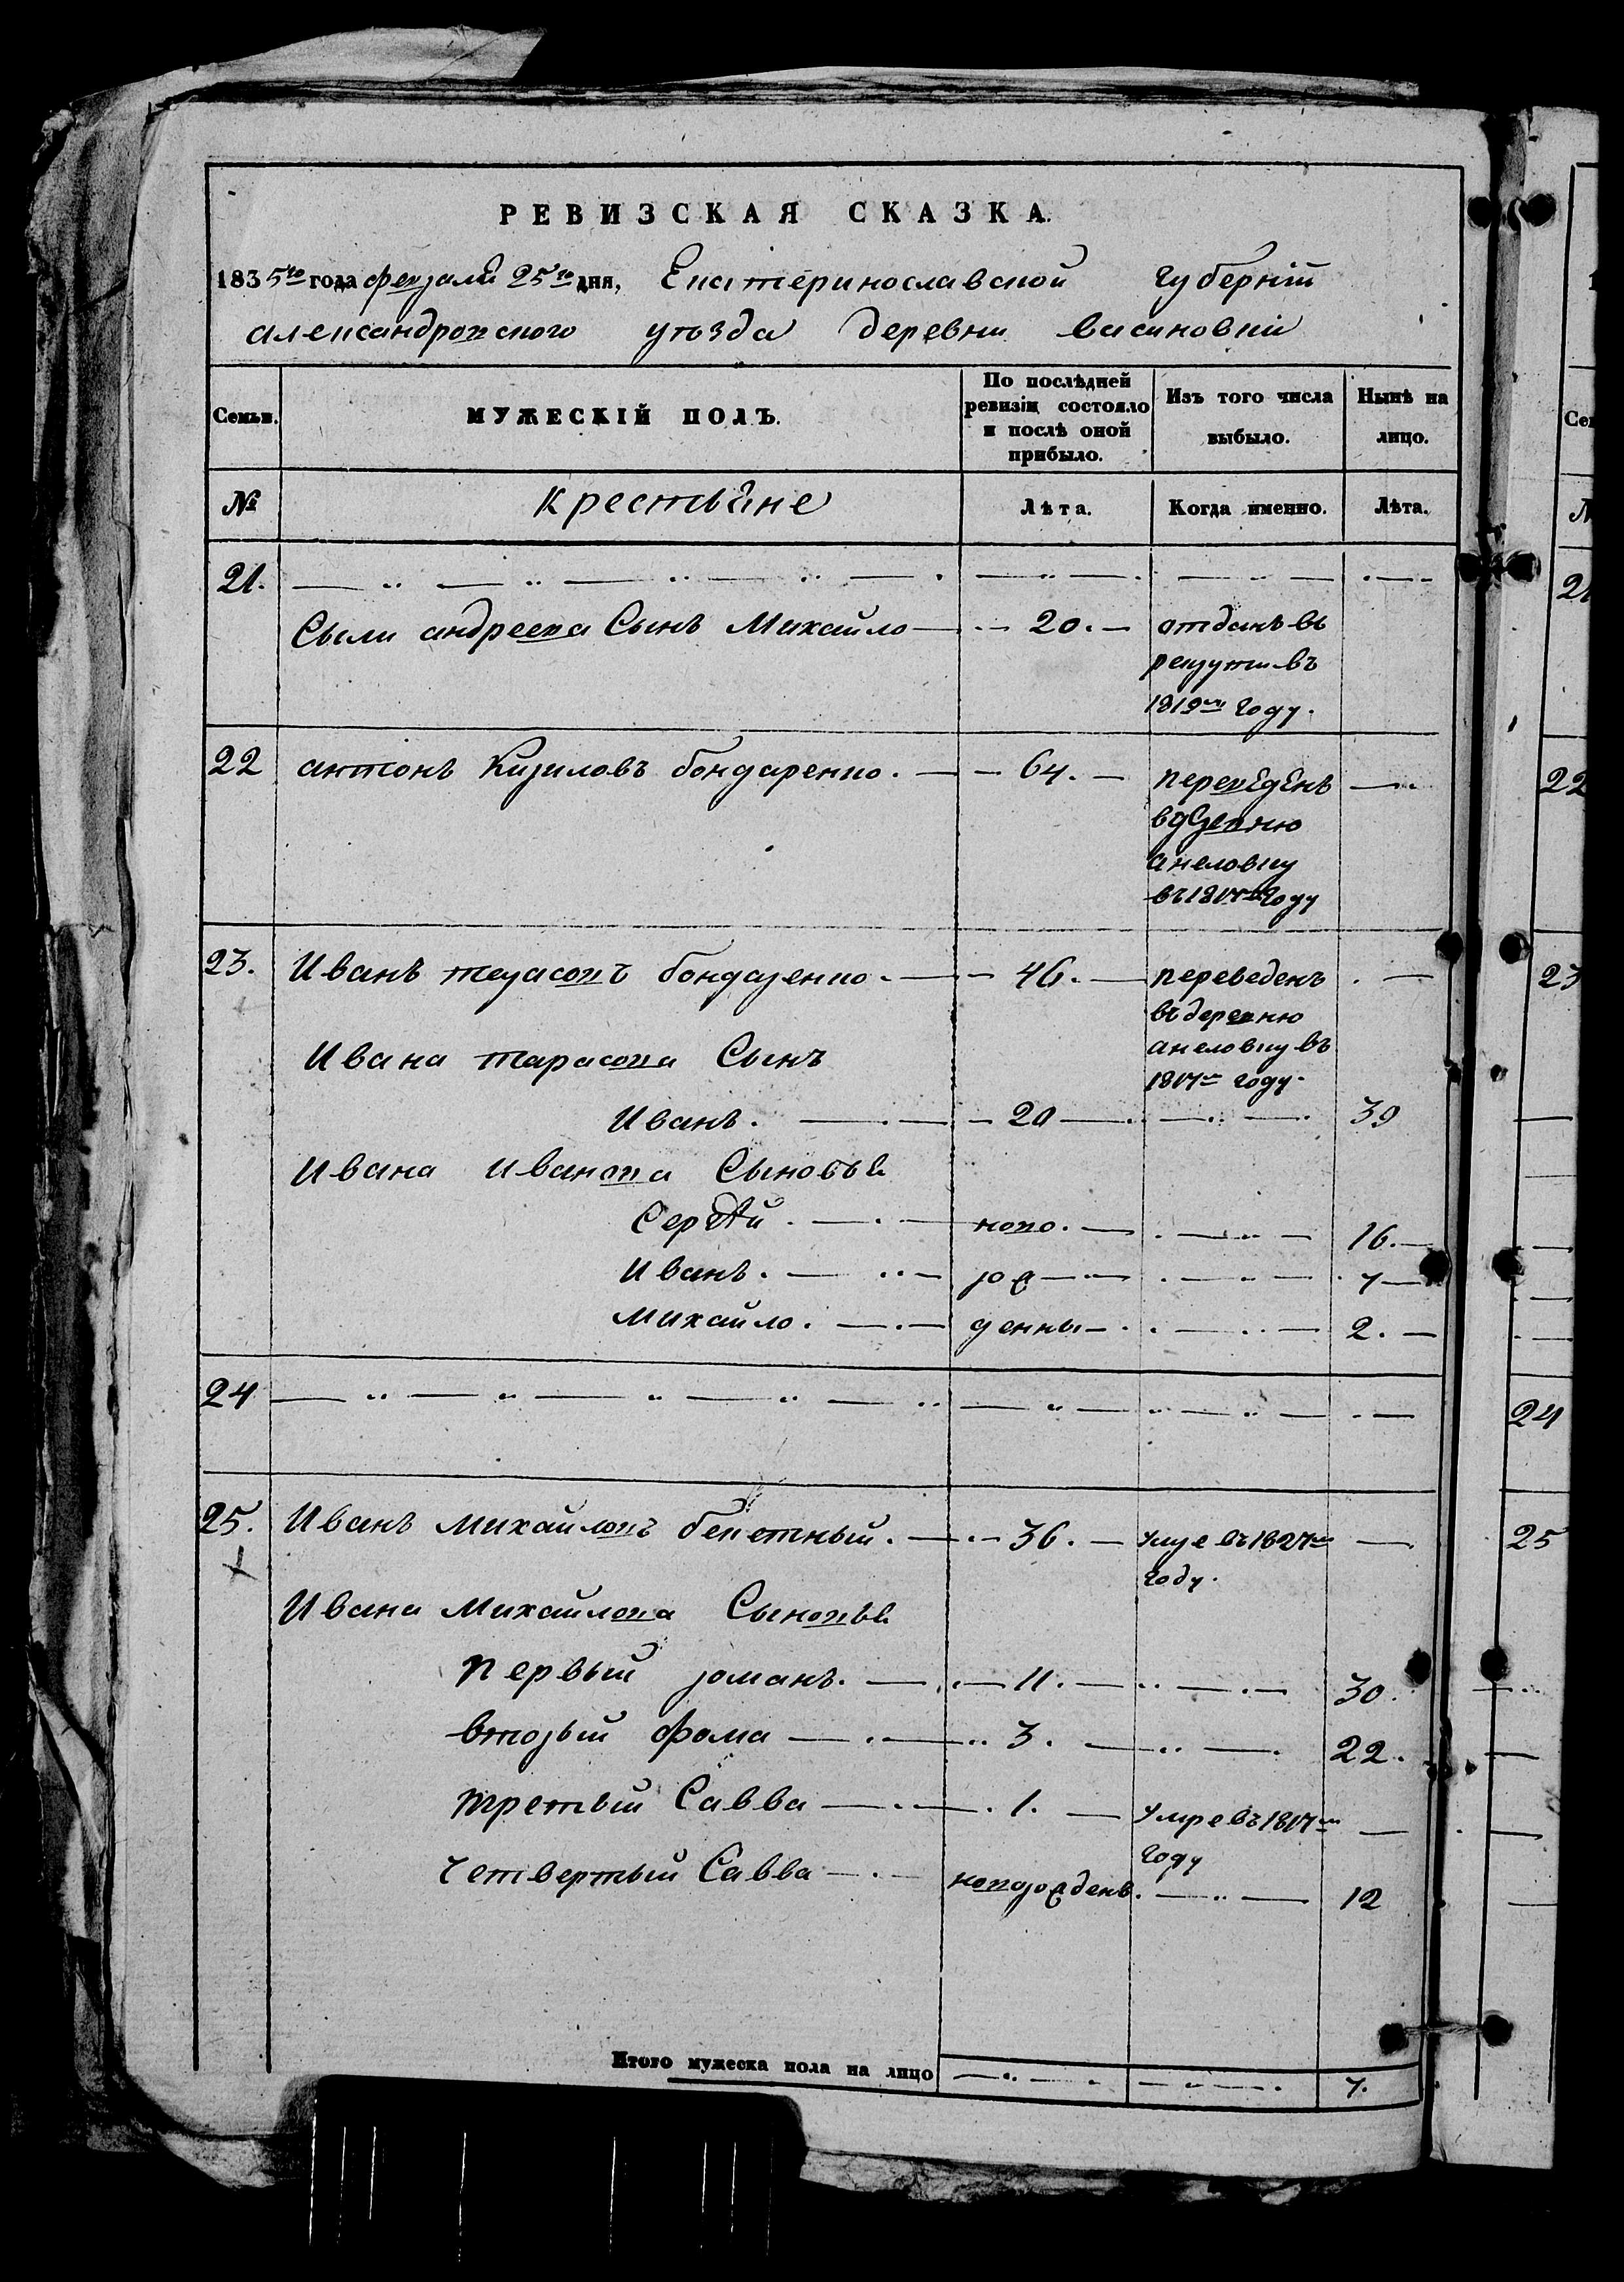 РЕВИЗСКАЯ СКАЗКА.
1835го года февраля 25го дня, Екатеринославской губернiи
александровского уѣзда деревни васиновки
Семьи. МУЖЕСКIЙ ПОЛЪ. По послѣдней ревизiи состояло и послѣ оной прибыло. Изъ того числа выбыло. Нынѣ на лицо.
№ крестьяне Лѣта. Когда именно. Лѣта.
21.
Сылы андреева Сынъ Михайло 20. отданъ въ
рекруты въ
1819м году.
22 антонъ Кириловъ бондаренко. 64. переведенъ
в деревню
анеловку
въ 1817м году
23. Иванъ тарасовъ бондаренко 46. переведенъ
въ деревню
Ивана тарасова Сынъ анеловку въ
1817м году.
Иванъ. 20 39
Ивана Иванова Сыновья
Сергѣй. ново. 16.
Иванъ. рож 7
Михайло. денны 2.
24
25. Иванъ Михайловъ бекетный. 36. умре въ 1827м
году.
Ивана Михайлова Сыновья
первый романъ. 11. 30.
вторый фома 3. 22.
третьий Савва 1. умре въ 1817м
году
четвертый Савва новорожденъ. 12
Итого мужеска пола на лицо 7.
21
22
23
24
25